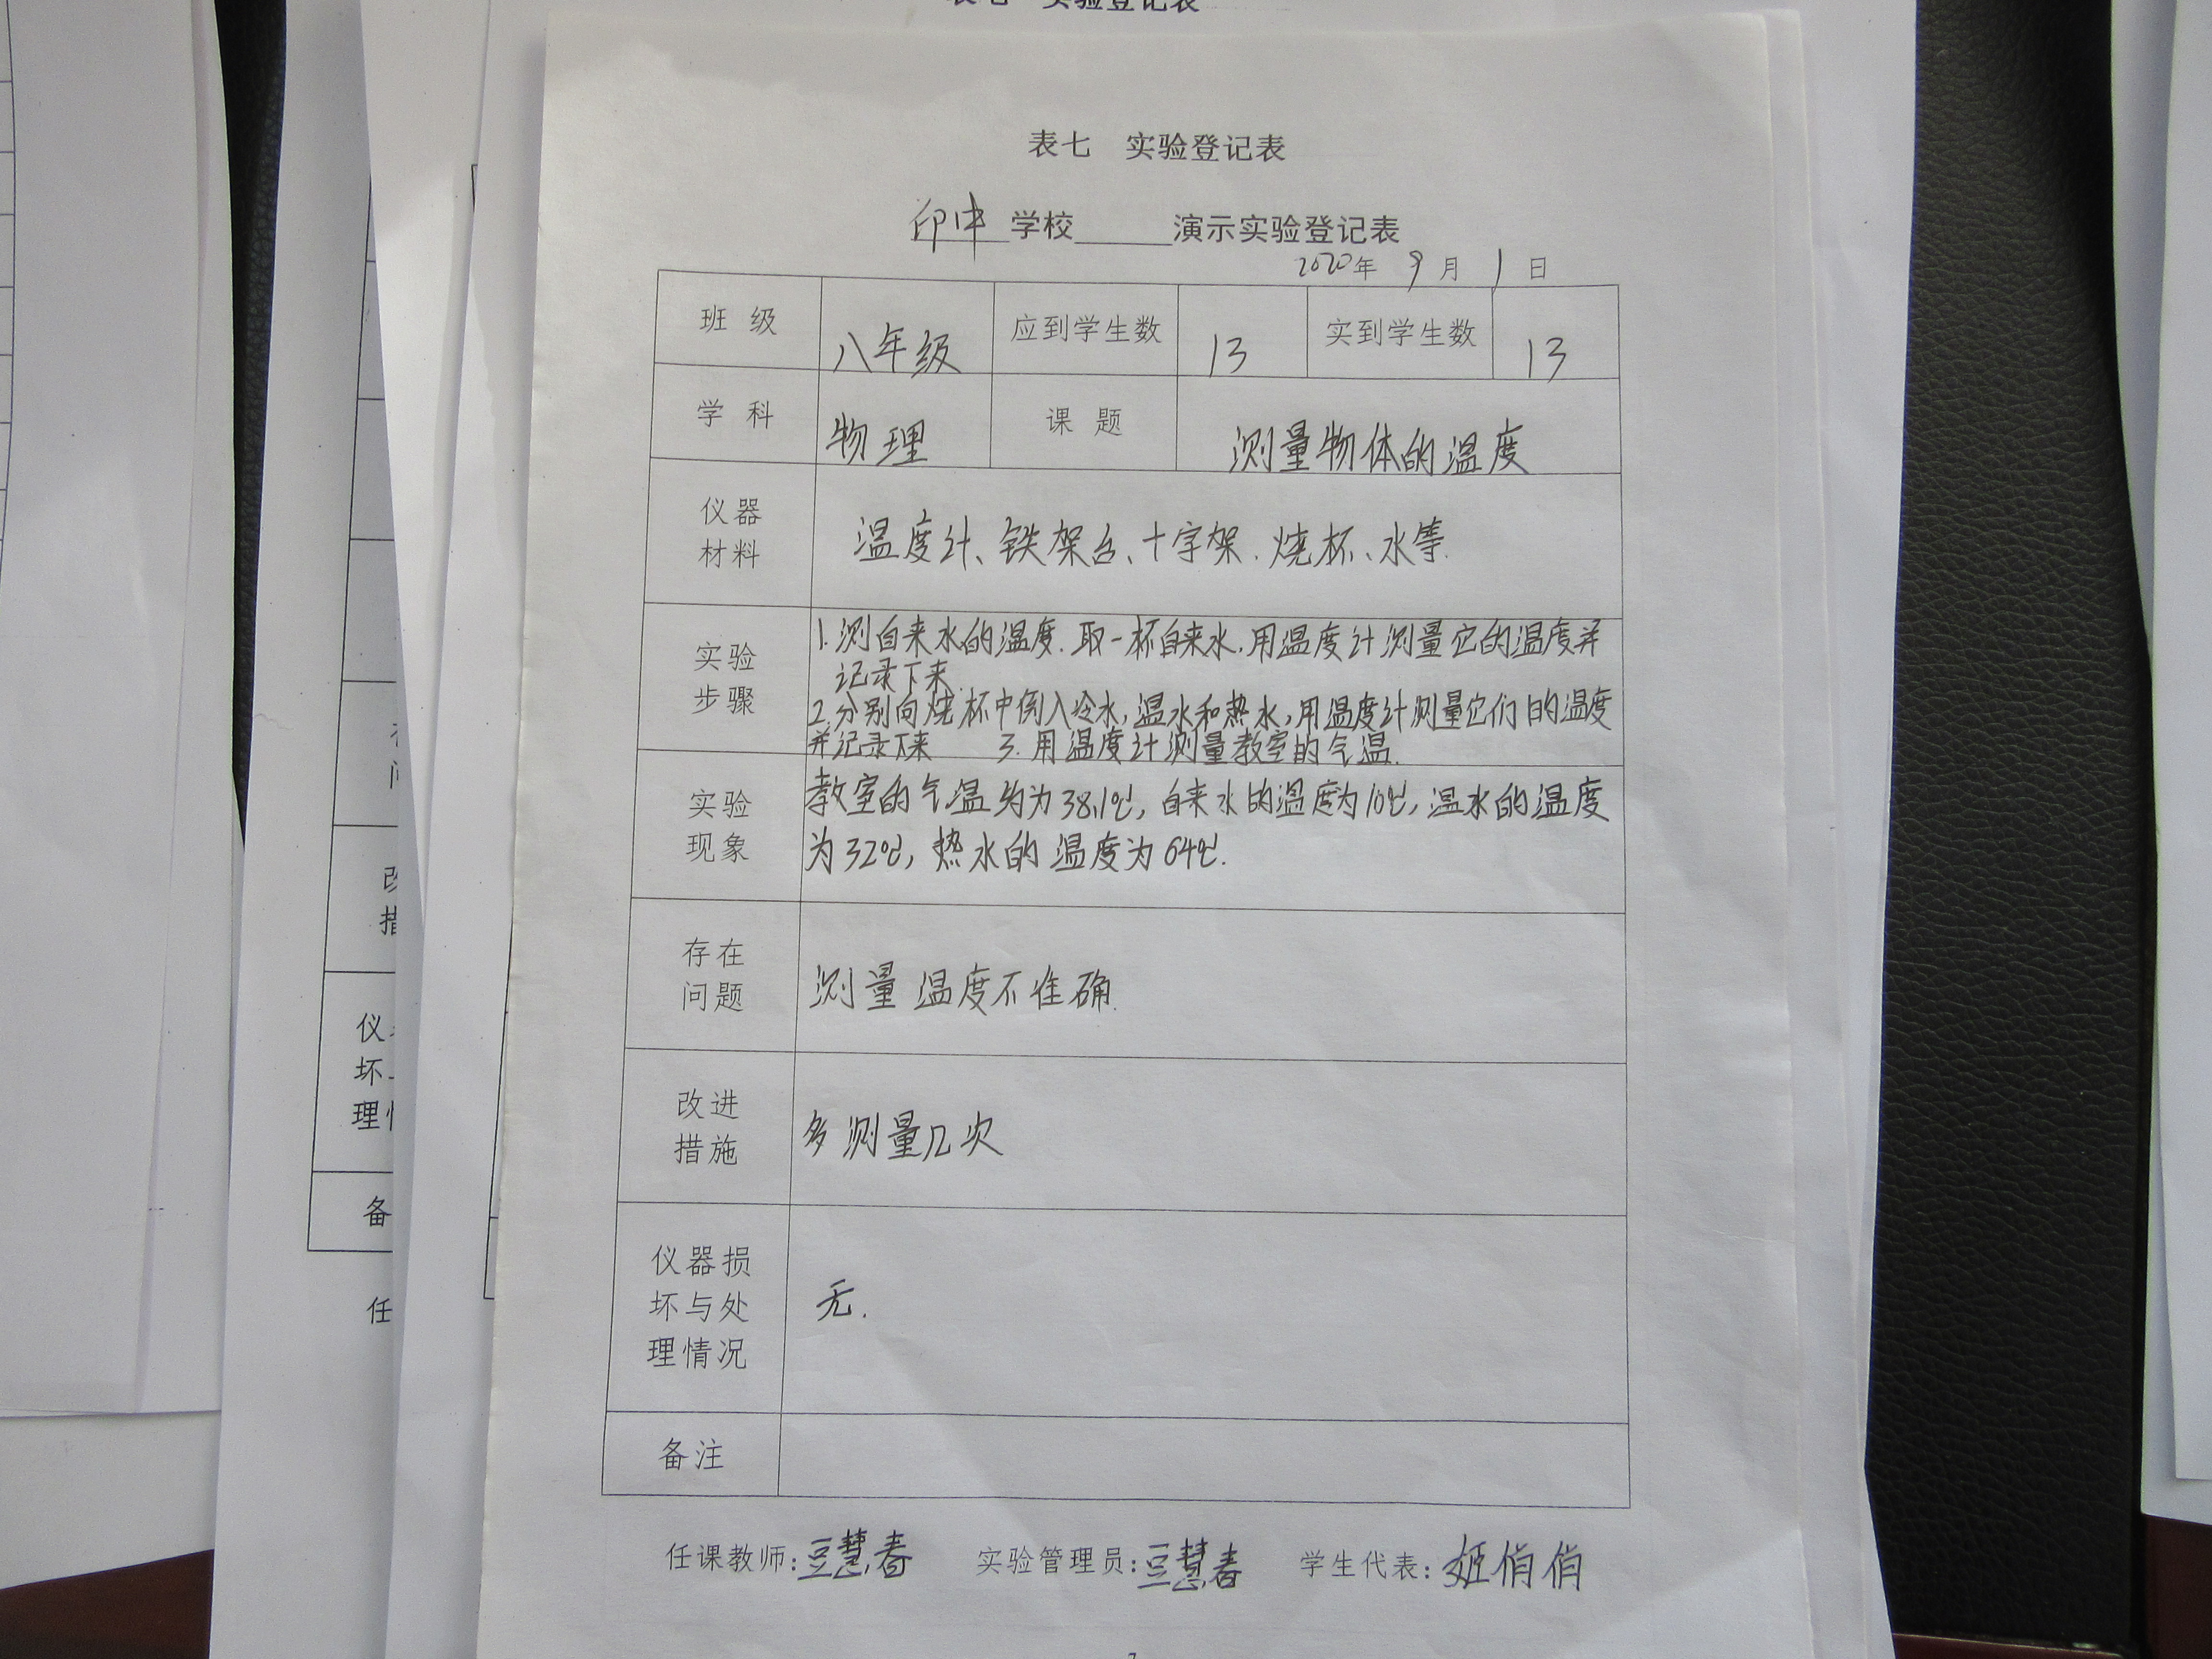 表七 实验登记表
表七 实验登记表
印中学校______演示实验登记表
2020年 9月 1日
班 级 八年级 应到学生数 13 实到学生数 13
学 科 物理 课 题 测量物体的温度
仪器
材料
温度计、铁架台、十字架、烧杯、水等.
实验
步骤
1.测自来水的温度.取一杯自来水,用温度计测量它的温度并
记录下来.
2.分别向烧杯中倒入冷水,温水和热水,用温度计测量它们的温度
并记录下来 3.用温度计测量教室的气温.
实验
现象
教室的气温约为38.1℃,自来水的温度为10℃,温水的温度
为32℃,热水的温度为64℃.
存在
问题
测量温度不准确.
改进
措施
多测量几次
仪器损
坏与处
理情况
无.
备注
任课教师:豆慧春 实验管理员:豆慧春 学生代表:姬俏俏
改
措
仪
坏
理
备
任